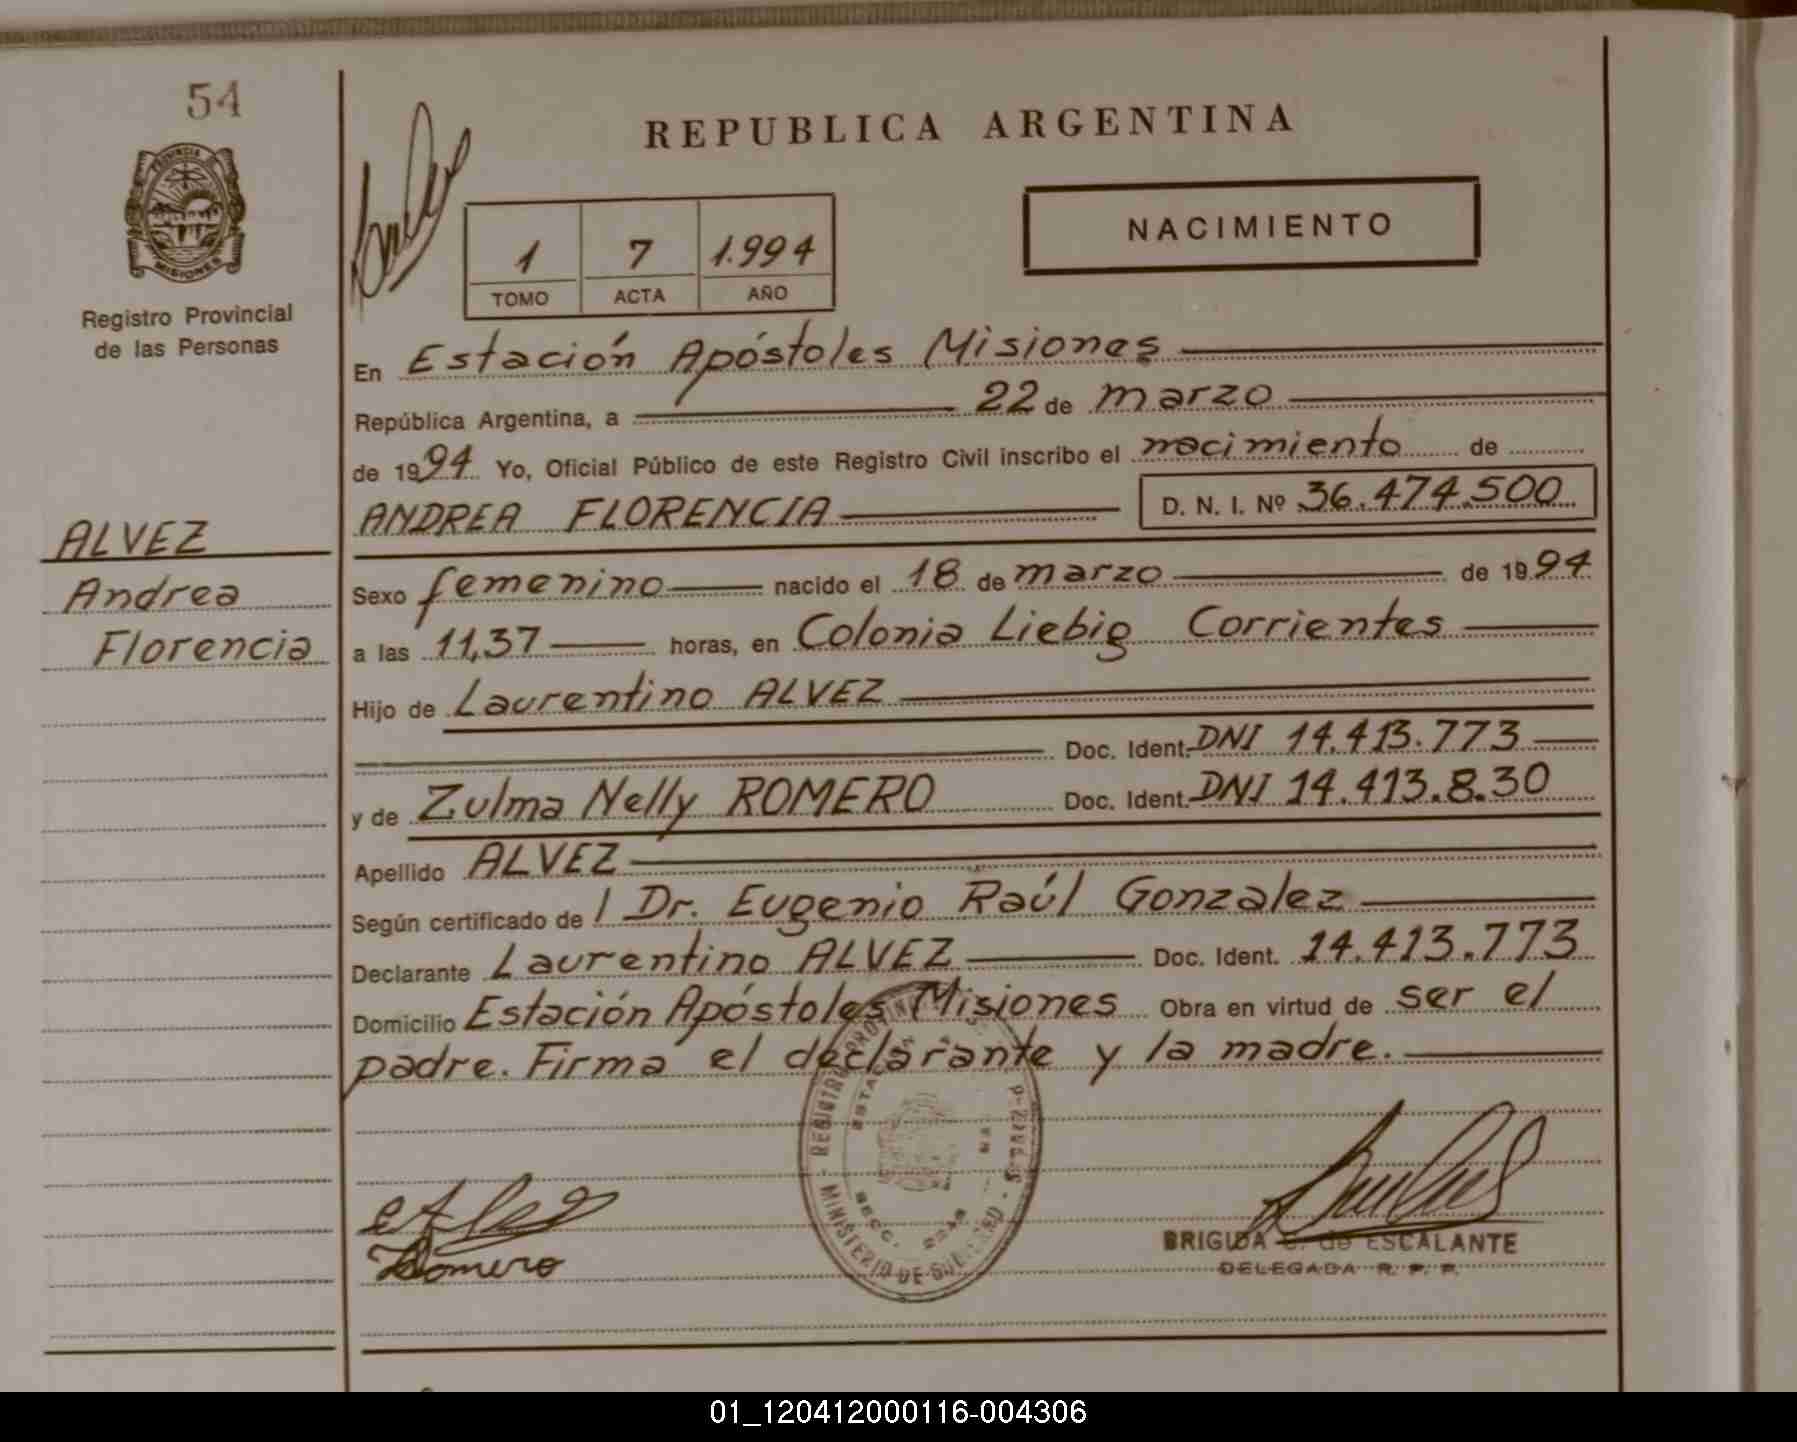 54
PROVINCIA DE
MISIONES
Registro Provincial
de las Personas
ALVEZ
Andrea
Florencia
REPUBLICA ARGENTINA
1 7 1.994
TOMO ACTA AÑO
NACIMIENTO
En Estación Apóstoles Misiones
República Argentina, a 22 de marzo
de 1994 Yo, Oficial Público de este Registro Civil inscribo el nacimiento de
ANDREA FLORENCIA D. N. I. Nº 36.474.500
Sexo femenino nacido el 18 de marzo de 1994
a las 11,37 horas, en Colonia Liebig Corrientes
Hijo de Laurentino ALVEZ
Doc. Ident. DNI 14.413.773
y de Zulma Nelly ROMERO Doc. Ident. DNI 14.413.8.30
Apellido ALVEZ
Según certificado de l Dr. Eugenio Raúl Gonzalez
Declarante Laurentino ALVEZ Doc. Ident. 14.413.773
Domicilio Estación Apóstoles Misiones Obra en virtud de ser el
padre. Firma el declarante y la madre.
REGISTRO PROVINC
MINISTERIO DE
SECC.
ZRomero
BRIGIDA de ESCALANTE
DELEGADA R. P. P.
01_120412000116-004306